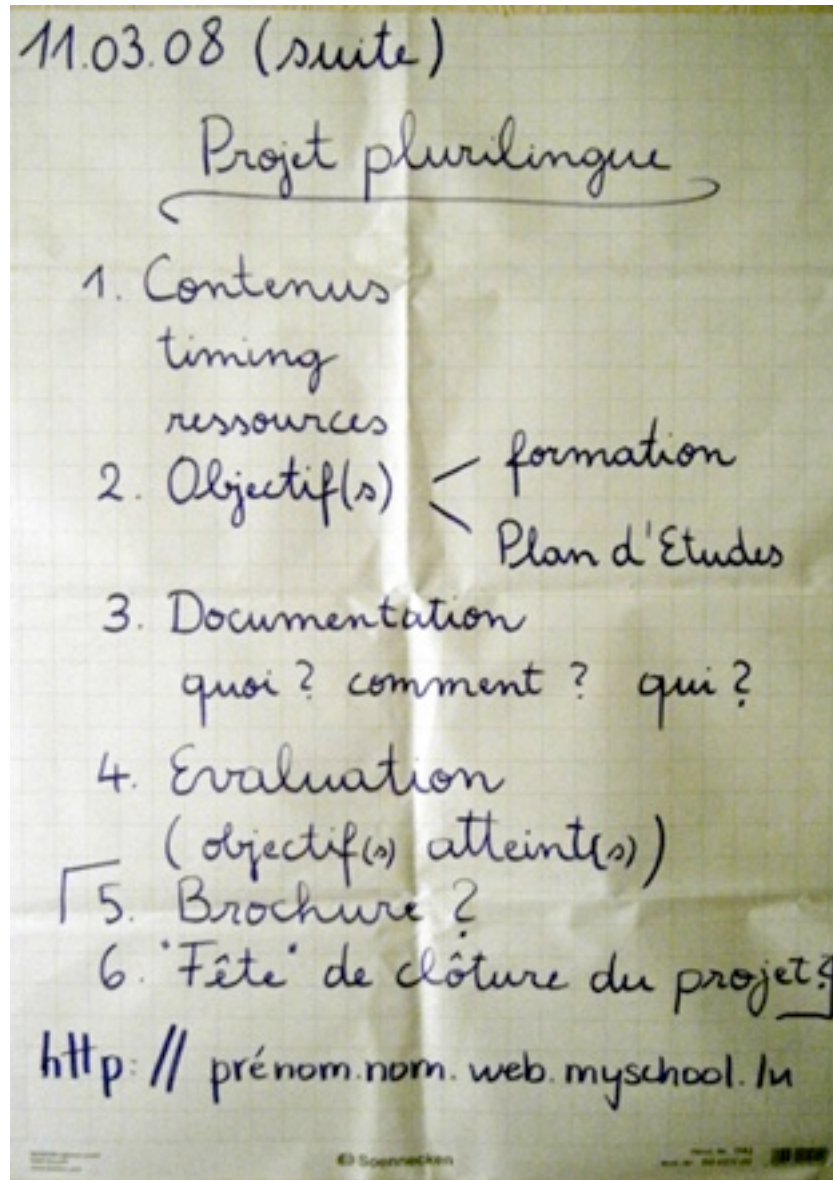 11.03.08 (suite)
Projet plurilingue
1. Contenus
timing
ressources
2. Objectif(s) < formation
Plan d'Etudes
3. Documentation
quoi ? comment ? qui ?
4. Evaluation
(objectif(s) atteint(s))
5. Brochure ?
6. "Fête" de clôture du projet?
http://prénom.nom.web.myschool.lu
Soennecken